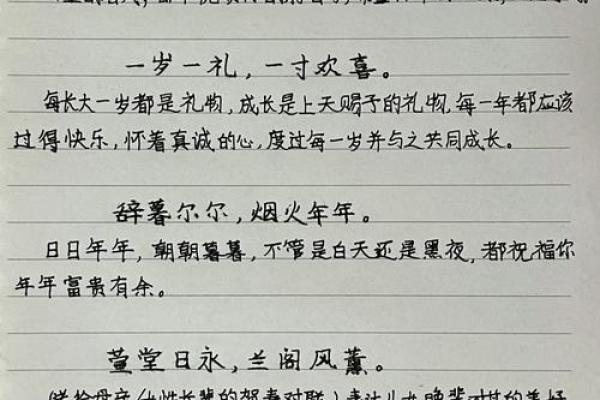 一岁一礼，一寸欢喜。
每长大一岁都是礼物，成长是上天赐予的礼物，每一年都应该
过得快乐，怀着真诚的心，度过每一岁并与之共同成长。
辞暮尔尔，烟火年年。
日日年年，朝朝暮暮，不管是白天还是黑夜，都祝福你
年年富贵有余。
萱堂日永，兰阁风薰。